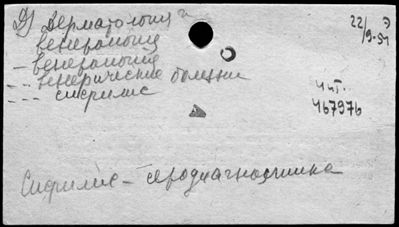 Д) Дерматология и
венерология
– венерология
- - венерические болезни
- - сифилис
22/9-51
Чит.
467976
Сифилис – серодиагностика